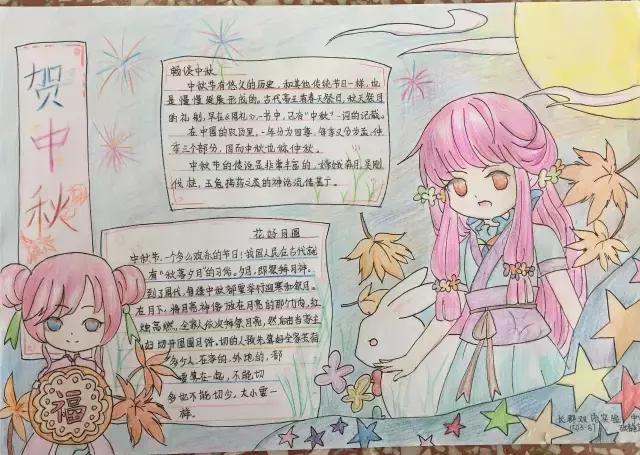 贺中秋
畅谈中秋
中秋节有悠久的历史，和其他传统节日一样，也
是慢慢发展形成的。古代帝王有春天祭日，秋天祭月
的礼制，早在《周礼》一书中，已有"中秋"一词的记载。
在中国的农历里，一年分为四季，每季又分为孟、仲、
季三个部分，因而中秋也称仲秋。
中秋节的传说是非常丰富的，嫦娥奔月，吴刚
伐桂，玉兔捣药之类的神话流传甚广。
花好月圆
中秋节，一个多么欢乐的节日！我国人民在古代就
有"秋暮夕月"的习俗。夕月，即祭拜月神。
到了周代，每逢中秋都要举行迎寒和祭月。
在月下，将月亮神像放在月亮的那个方向，红
烛高燃，全家人依次拜祭月亮，然后由当家主
妇切开团圆月饼。切的人预先算好全家共有
多少人，在家的，外地的，都
要算在一起，不能切
多也不能切少，大小要一
样。
福
长郡双语实验中